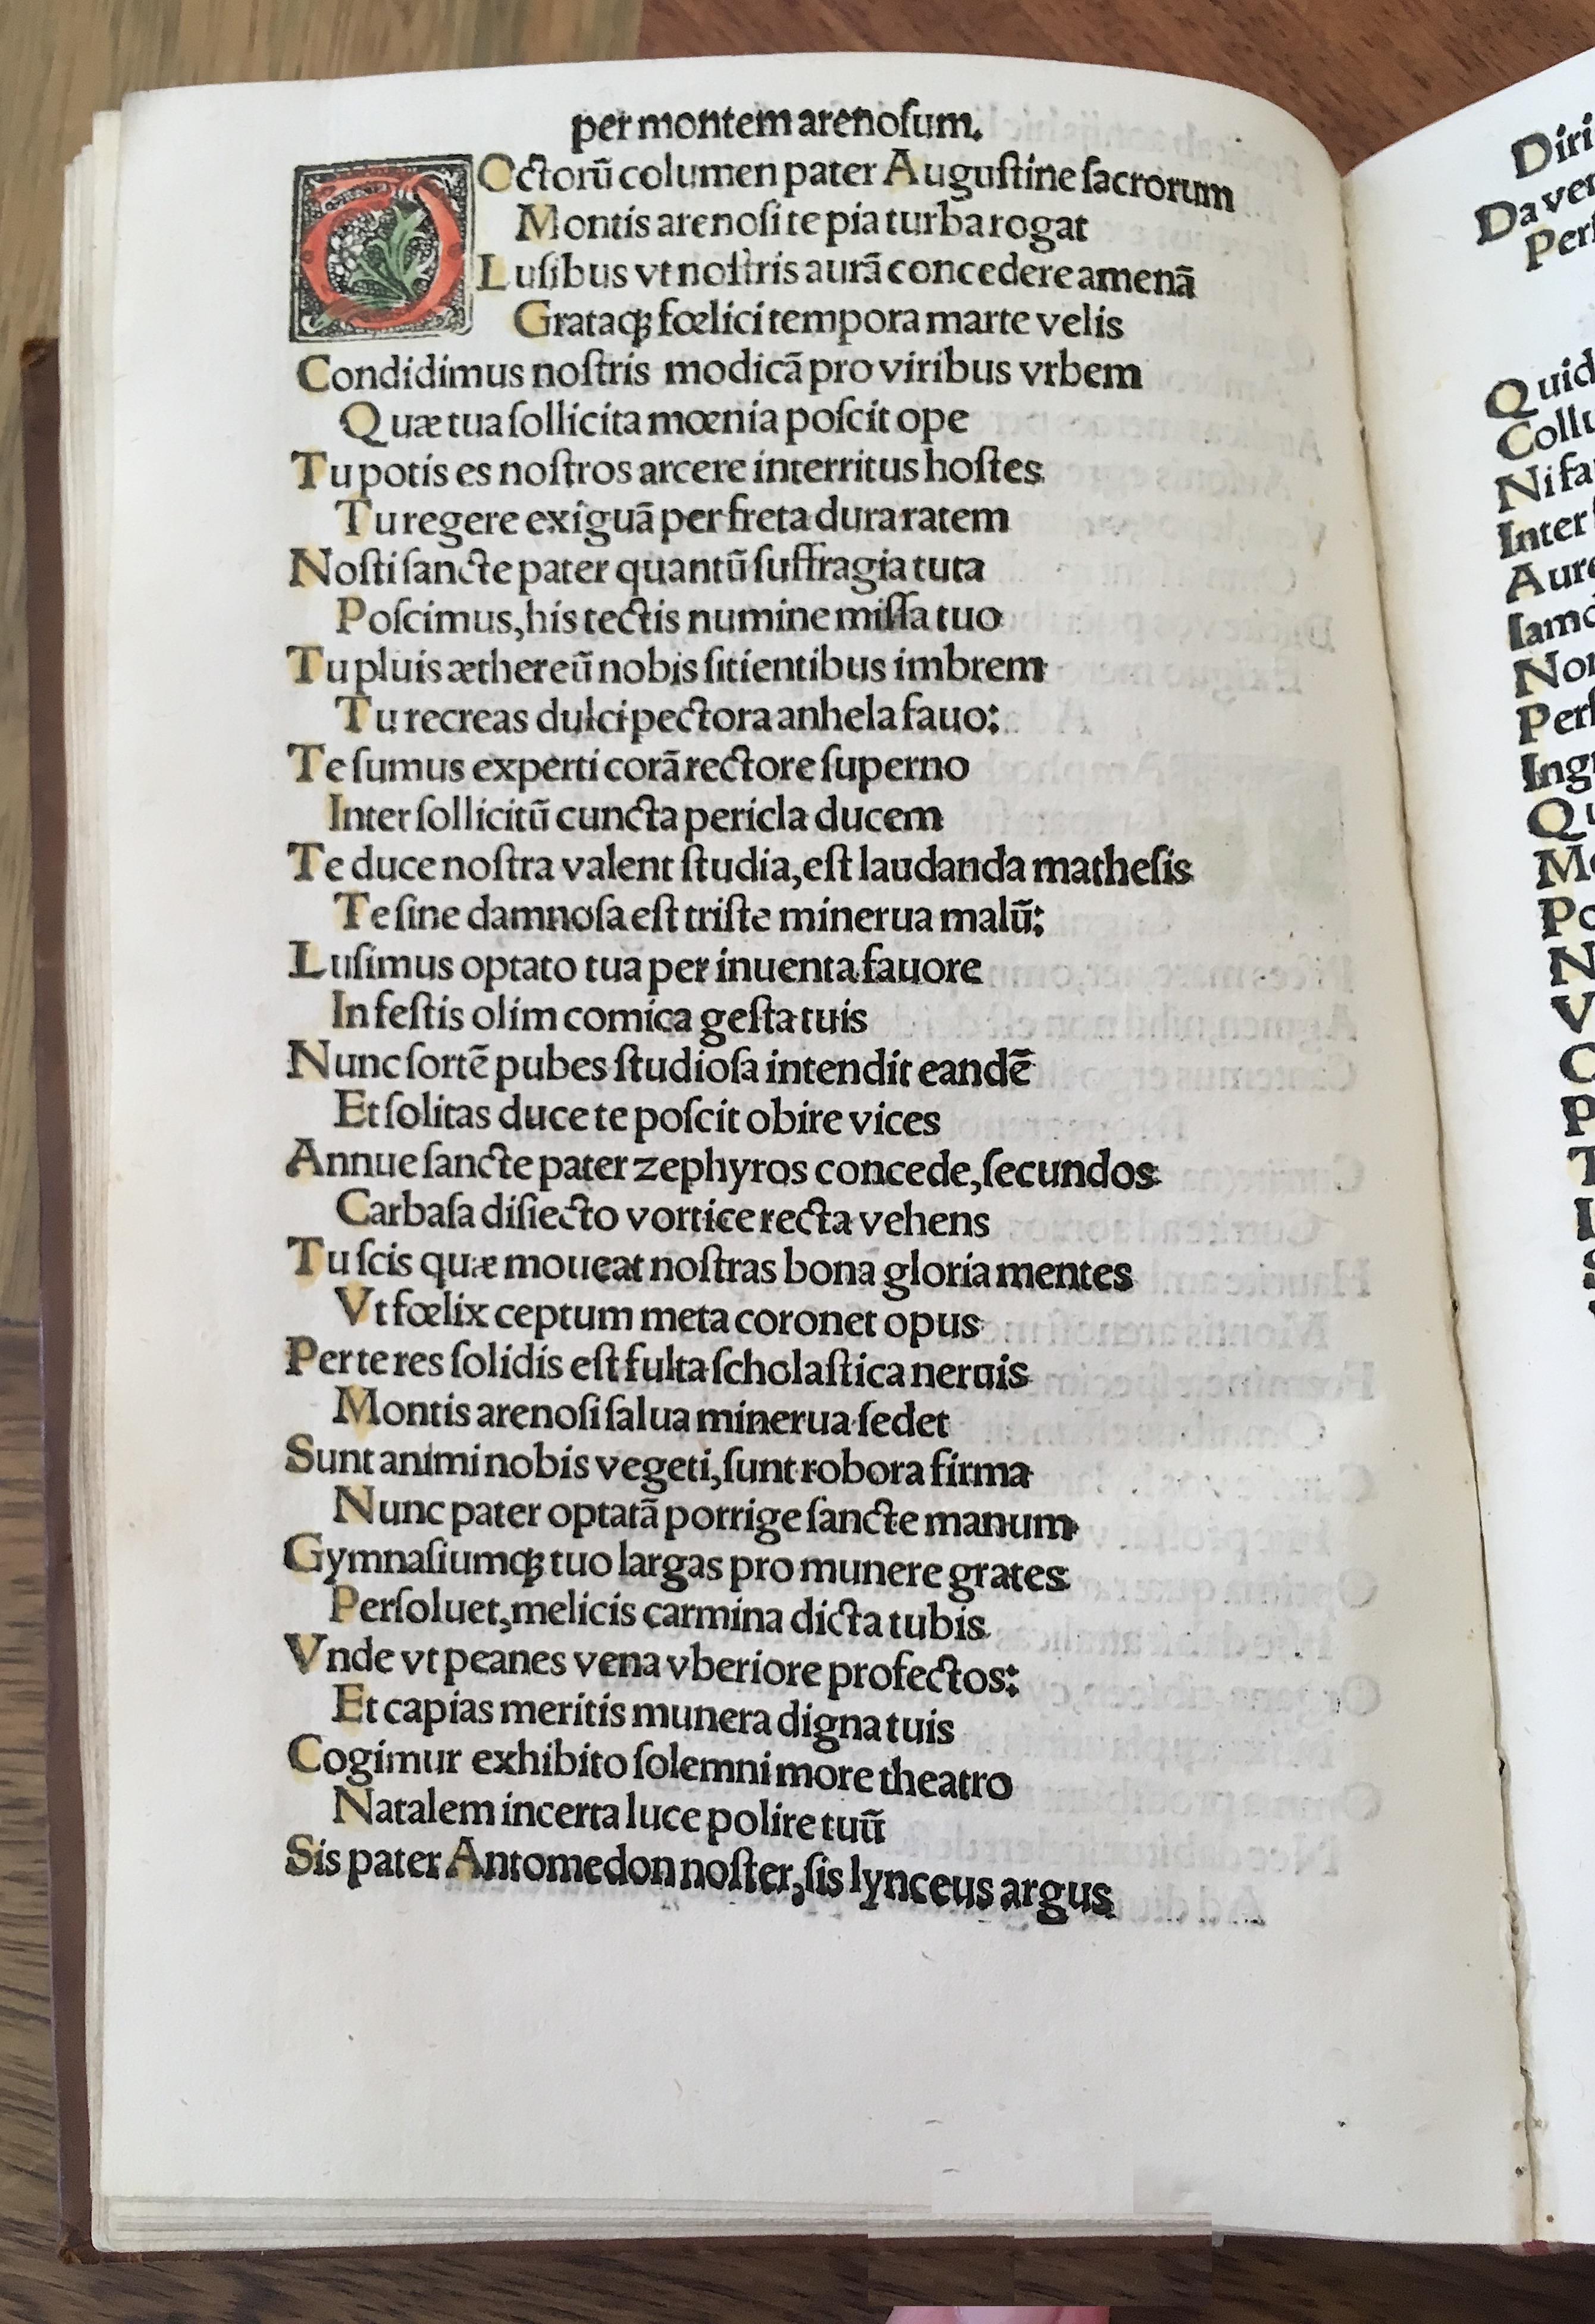 per montem arenoſum.
DOctorū columen pater Auguſtine ſacrorum
Montis arenoſi te pia turba rogat
Luſibus vt noſtris aurā concedere amenā
Grataqꝫ fœlici tempora marte velis
Condidimus noſtris modicā pro viribus vrbem
Quæ tua ſollicita mœnia poſcit ope
Tu potis es noſtros arcere interritus hoſtes
Tu regere exiguā per freta dura ratem
Noſti ſancte pater quantū ſuffragia tuta
Poſcimus, his tectis numine miſſa tuo
Tu pluis æthereū nobis ſitientibus imbrem
Tu recreas dulci pectora anhela fauo:
Te ſumus experti corā rectore ſuperno
Inter ſollicitū cuncta pericla ducem
Te duce noſtra valent ſtudia, eſt laudanda matheſis
Te ſine damnoſa eſt triſte minerua malū:
Luſimus optato tua per inuenta fauore
In feſtis olim comica geſta tuis
Nunc ſortē pubes ſtudioſa intendit eandē
Et ſolitas duce te poſcit obire vices
Annue ſancte pater zephyros concede, ſecundos
Carbaſa diſiecto vortice recta vehens
Tu ſcis quæ moueat noſtras bona gloria mentes
Vt fœlix ceptum meta coronet opus
Per te res ſolidis eſt fulta ſcholaſtica neruis
Montis arenoſi ſalua minerua ſedet
Sunt animi nobis vegeti, ſunt robora firma
Nunc pater optatā porrige ſancte manum
Gymnaſiumqꝫ tuo largas pro munere grates
Perſoluet, melicis carmina dicta tubis
Vnde vt peanes vena vberiore profectos:
Et capias meritis munera digna tuis
Cogimur exhibito ſolemni more theatro
Natalem incerta luce polire tuū
Sis pater Antomedon noſter, ſis lynceus argus
Diri
Da ver
Per
Quid
Collu
Ni fa
Inter
Aure
Iamd
Non
Perſ
Ingr